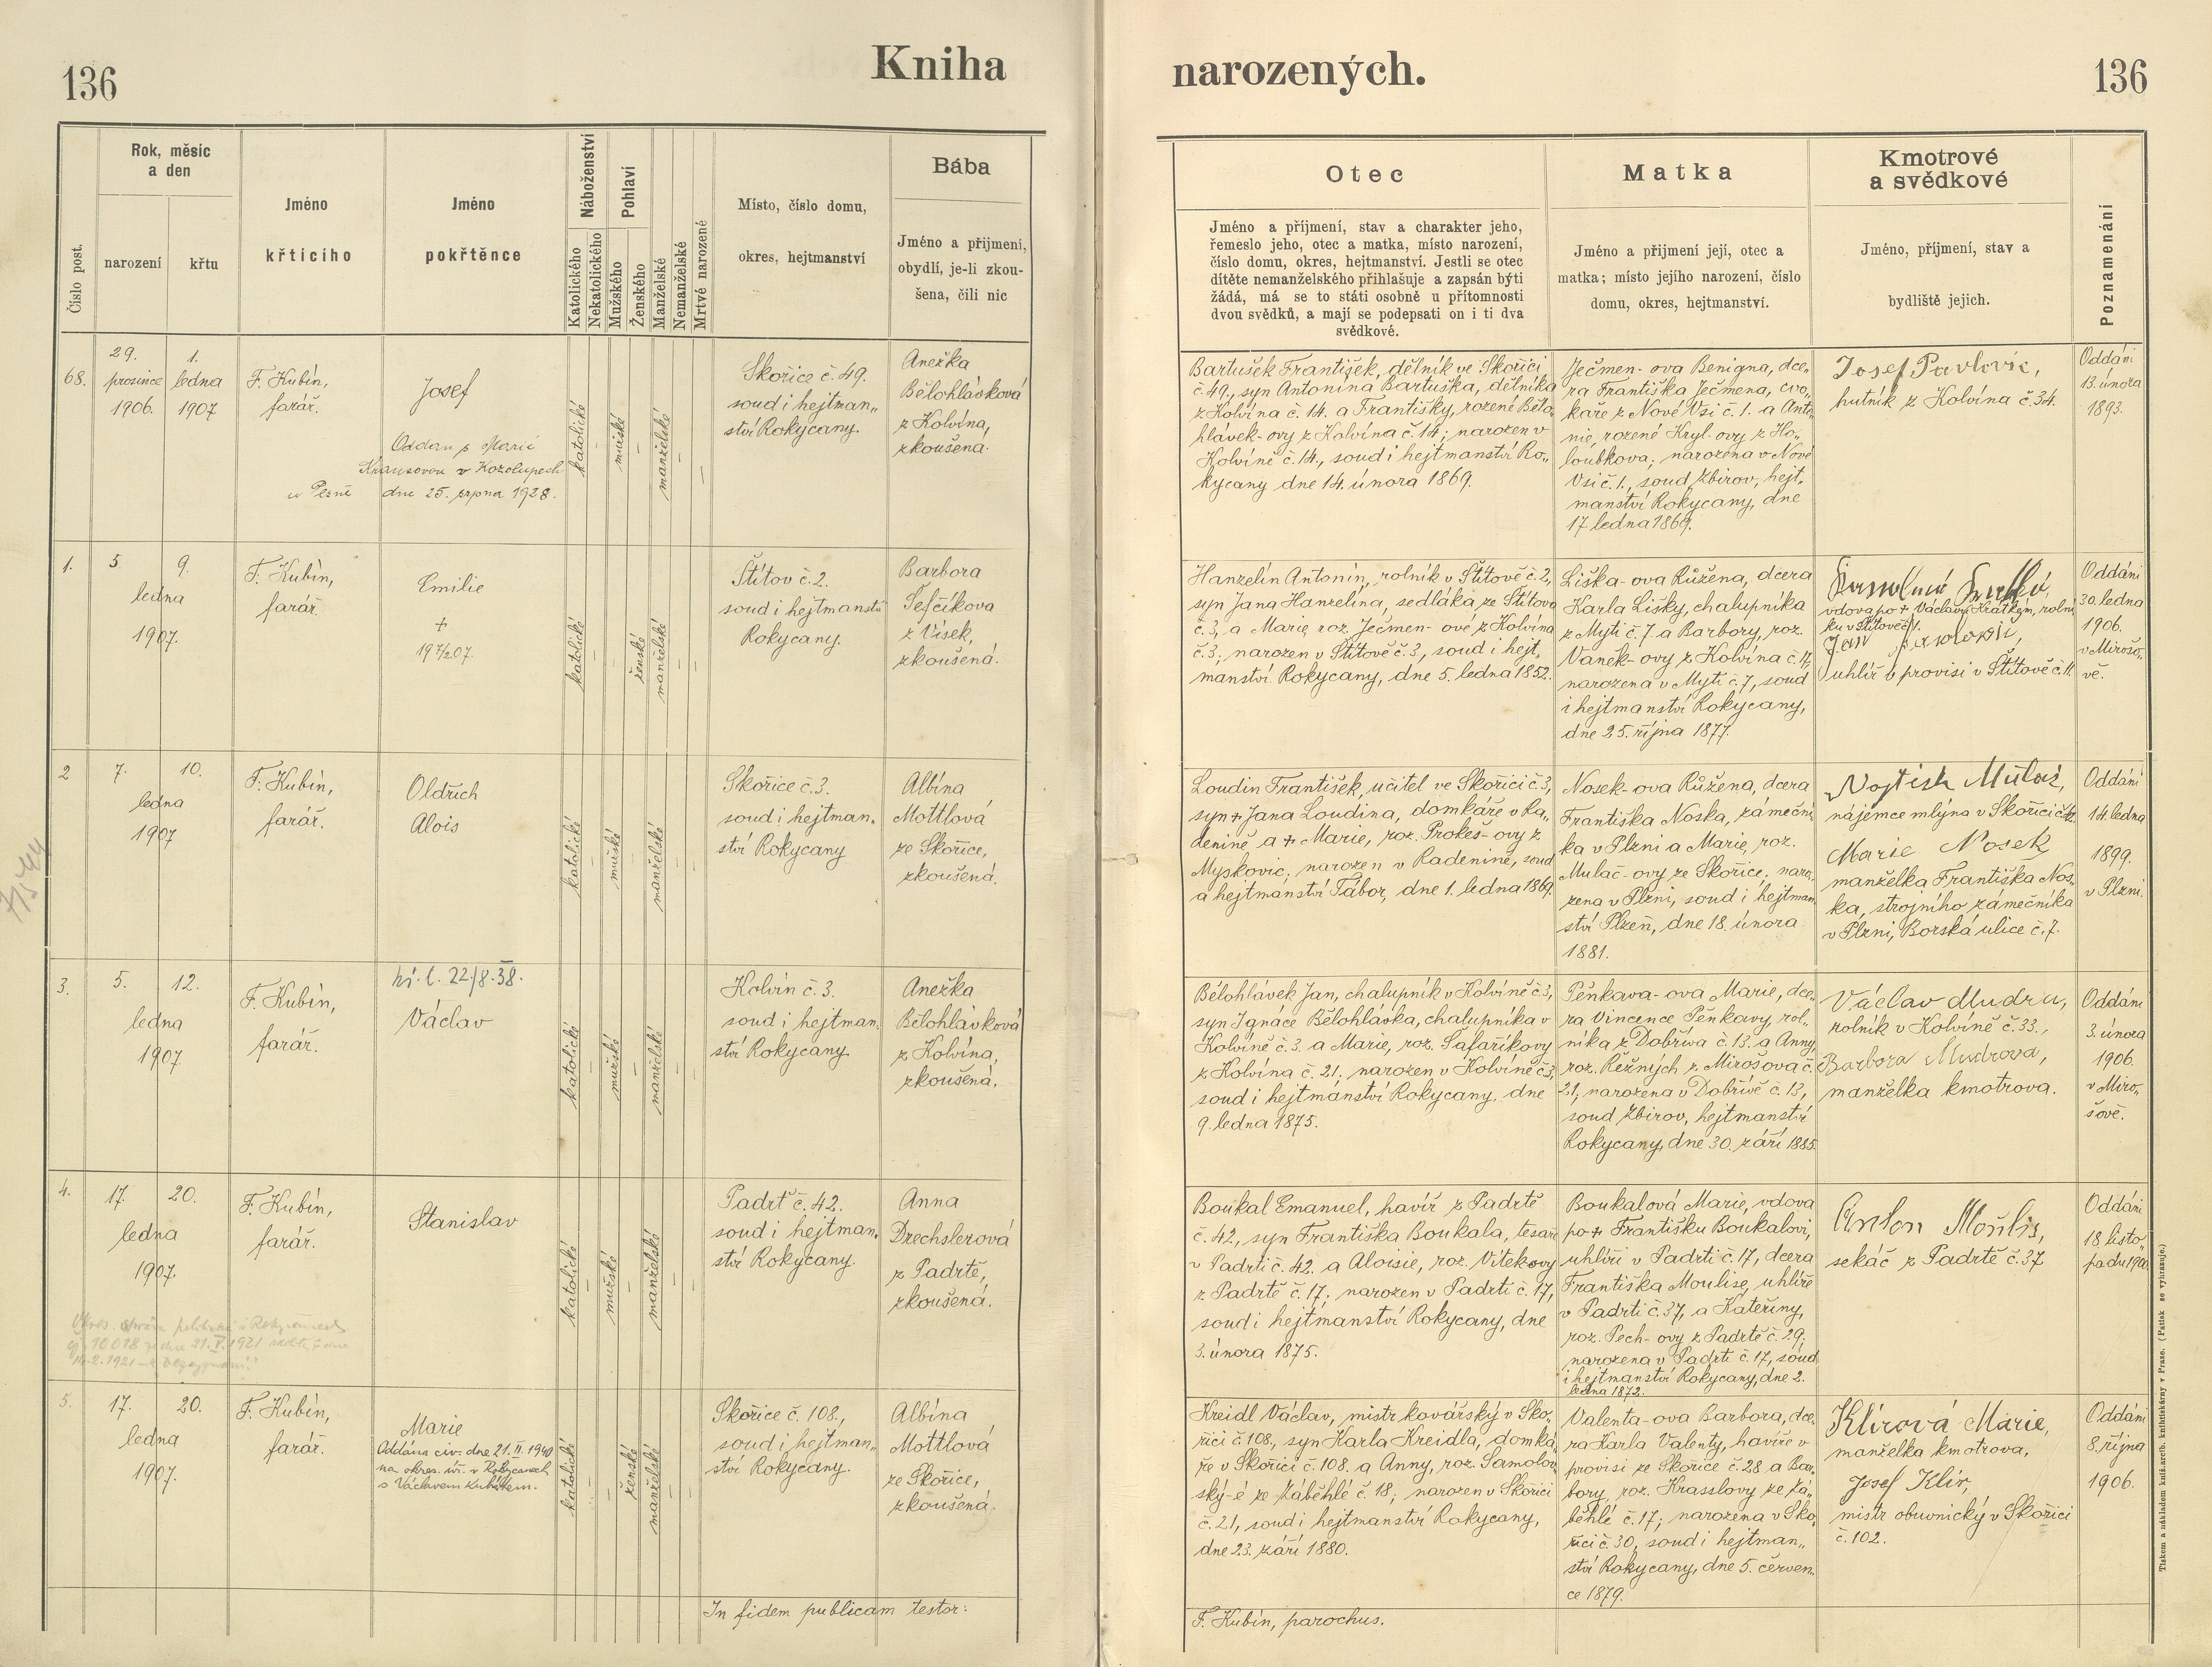 136
Kniha
Rok, měsíc
a den
Číslo post.
narození
křtu
Jméno
křticího
Jméno
pokřtěnce
Náboženství
Katolického
Nekatolického
Pohlaví
Mužského
Ženského
Manželské
Nemanželské
Mrtvé narozené
Místo, číslo domu,
okres, hejtmanství
Bába
Jméno a přijmení,
obydlí, je-li zkou-
šena, čili nic
68.
29.
prosince
1906.
1.
ledna
1907
F. Kubín,
farář.
Josef
Oddán s Marií
Krausovou v Kozolupech
u Plzně dne 25. srpna 1928.
katolické
mužské
manželské
Skořice č. 49.
soud i hejtman„
ství Rokycany.
Anežka
Bělohlávková
z Kolvína,
zkoušena.
1.
5
9.
ledna
1907.
F. Kubín,
farář.
Emilie
+
19 7/2 07.
katolické
ženské
manželské
Štítov č. 2.
soud i hejtmanství
Rokycany.
Barbora
Šefčíkova
z Vísek,
zkoušená.
2
7.
10.
ledna
1907
F. Kubín,
farář.
Oldřich
Alois
katolické
mužské
manželské
Skořice č. 3.
soud i hejtman„
ství Rokycany
Albína
Mottlová
ze Skořice,
zkoušená.
3.
5.
12.
ledna
1907
F. Kubín,
farář.
kř. l. 22/8.38.
Václav
katolické
mužské
manželské
Kolvín č. 3.
soud i hejtman„
ství Rokycany.
Anežka
Bělohlávková
z Kolvína,
zkoušená.
4.
17.
20.
ledna
1907.
F. Kubín,
farář.
Stanislav
katolické
mužské
manželské
Padrť č. 42.
soud i hejtman„
ství Rokycany.
Anna
Drechslerová
z Padrtě,
zkoušená.
Okres. správa politická v Rokycanech
čj. 10018 ze dne 21. V. 1921
14.2.1921
5.
17.
20.
ledna
1907.
F. Kubín,
farář.
Marie
Oddána civ. dne 21. II. 1940
na okres. úř. v Rokycanech
s Václavem Kubátem.
katolické
ženské
manželské
Skořice č. 108.,
soud i hejtman„
ství Rokycany.
Albína
Mottlová
ze Skořice,
zkoušená.
In fidem publicam testor:
narozených.
136
Otec
Jméno a příjmení, stav a charakter jeho,
řemeslo jeho, otec a matka, místo narození,
číslo domu, okres, hejtmanství. Jestli se otec
dítěte nemanželského přihlašuje a zapsán býti
žádá, má se to státi osobně u přítomnosti
dvou svědků, a mají se podepsati on i ti dva
svědkové.
Matka
Jméno a přijmení její, otec a
matka; místo jejího narození, číslo
domu, okres, hejtmanství.
Kmotrové
a svědkové
Jméno, příjmení, stav a
bydliště jejich.
Poznamenání
Bartušek František, dělník ve Skořici
č. 49., syn Antonína Bartuška, dělníka
z Kolvína č. 14. a Františky, rozené Bělo„
hlávek-ovy z Kolvína č. 14; narozen v
Kolvíně č. 14., soud i hejtmanství Ro„
kycany dne 14. února 1869.
Ječmen-ova Benigna, dce„
ra Františka Ječmena, cvo„
kaře z Nové Vsi č. 1. a Anto„
nie, rozené Kryl-ovy z Ho„
loubkova; narozena v Nové
Vsi č. 1., soud Zbirov, hejt„
manství Rokycany, dne
17. ledna 1869.
Josef Pavlovic,
hutník z Kolvína č. 34.
Oddáni
13. února
1893.
Hanzelín Antonín, rolník v Štítově č. 2,
syn Jana Hanzelína, sedláka ze Štítova
č. 3, a Marie roz. Ječmen-ové z Kolvína
č. 3; narozen v Štítově č. 3, soud i hejt„
manství Rokycany, dne 5. ledna 1852.
Liška-ova Růžena, dcera
Karla Lišky, chalupníka
z Mýti č. 7 a Barbory, roz.
Vaněk-ovy z Kolvína č. 17,
narozena v Mýti č. 7, soud
i hejtmanství Rokycany,
dne 25. října 1877.
vdova po + Václavu Krátkém, rolní„
ku v Štítově č. 1.
Jan
uhlíř v provisi v Štítově č. 11.
Oddáni
30. ledna
1906.
v Mirošo„
vě.
Loudin František, učitel ve Skořici č. 3,
syn + Jana Loudina, domkáře v Ra„
denině a + Marie, roz. Prokeš-ovy z
Myskovic; narozen v Radenině, soud
a hejtmanství Tábor, dne 1. ledna 1869.
Nosek-ova Růžena, dcera
Františka Noska, zámeční„
ka v Plzni a Marie, roz.
Mulač-ovy ze Skořice; naro„
zena v Plzni, soud i hejtman„
ství Plzeň, dne 18. února
1881.
Vojtěch Mulač,
nájemce mlýna v Skořici č.
Marie Nosek
manželka Františka Nos„
ka, strojního zámečníka
v Plzni, Borská ulice č. 7.
Oddáni
14. ledna
1899.
v Plzni.
Bělohlávek Jan, chalupník v Kolvíně č. 3,
syn Ignáce Bělohlávka, chalupníka v
Kolvíně č. 3. a Marie, roz. Šafaříkovy
z Kolvína č. 21. narozen v Kolvíně č. 3,
soud i hejtmanství Rokycany, dne
9. ledna 1875.
Pěnkava-ova Marie, dce„
ra Vincence Pěnkavy, rol„
níka z Dobříva č. 13. a Anny,
roz. Řežných z Mirošova č.
21; narozena v Dobřívě č. 13,
soud Zbirov, hejtmanství
Rokycany, dne 30. září 1885
Václav Mudra,
rolník v Kolvíně č. 33.,
Barbora Mudrova,
manželka kmotrova.
Oddáni
3. února
1906.
v Miro„
šově.
Boukal Emanuel, havíř z Padrtě
č. 42, syn Františka Boukala, tesaře
v Padrti č. 42. a Aloisie, roz. Vítekovy
z Padrtě č. 17.; narozen v Padrti č. 17,
soud i hejtmanství Rokycany, dne
3. února 1875.
Boukalová Marie, vdova
po + Františku Boukalovi,
uhlíři v Padrti č. 17, dcera
Františka Moulise, uhlíře
v Padrti č. 37, a Kateřiny,
roz. Pech-ovy z Padrtě č. 29;
narozena v Padrti č. 17, soud
i hejtmanství Rokycany, dne 2.
ledna 1872.
Anton Moulis,
sekáč z Padrtě č. 37
Oddáni
18. listo„
padu 1900.
Kreidl Václav, mistr kovářský v Sko„
řici č. 108., syn Karla Kreidla, domká„
ře v Skořici č. 108. a Anny, roz. Samolov„
ský-é ze Záběhlé č. 18; narozen v Skořici
č. 21, soud i hejtmanství Rokycany,
dne 23. září 1880.
Valenta-ova Barbora, dce„
ra Karla Valenty, havíře v
provisi ze Skořice č. 28 a Bar„
bory, roz. Krasslovy ze Zá„
běhlé č. 17; narozena v Sko„
řici č. 30, soud i hejtman„
ství Rokycany, dne 5. červen„
ce 1879.
Klírová Marie,
manželka kmotrova,
Josef Klír,
mistr obuvnický v Skořici
č. 102.
Oddáni
8. října
1906.
F. Kubín, parochus.
Tiskem a nákladem kníž. arcib. knihtiskárny v Praze. (Patisk se vyhrazuje.)